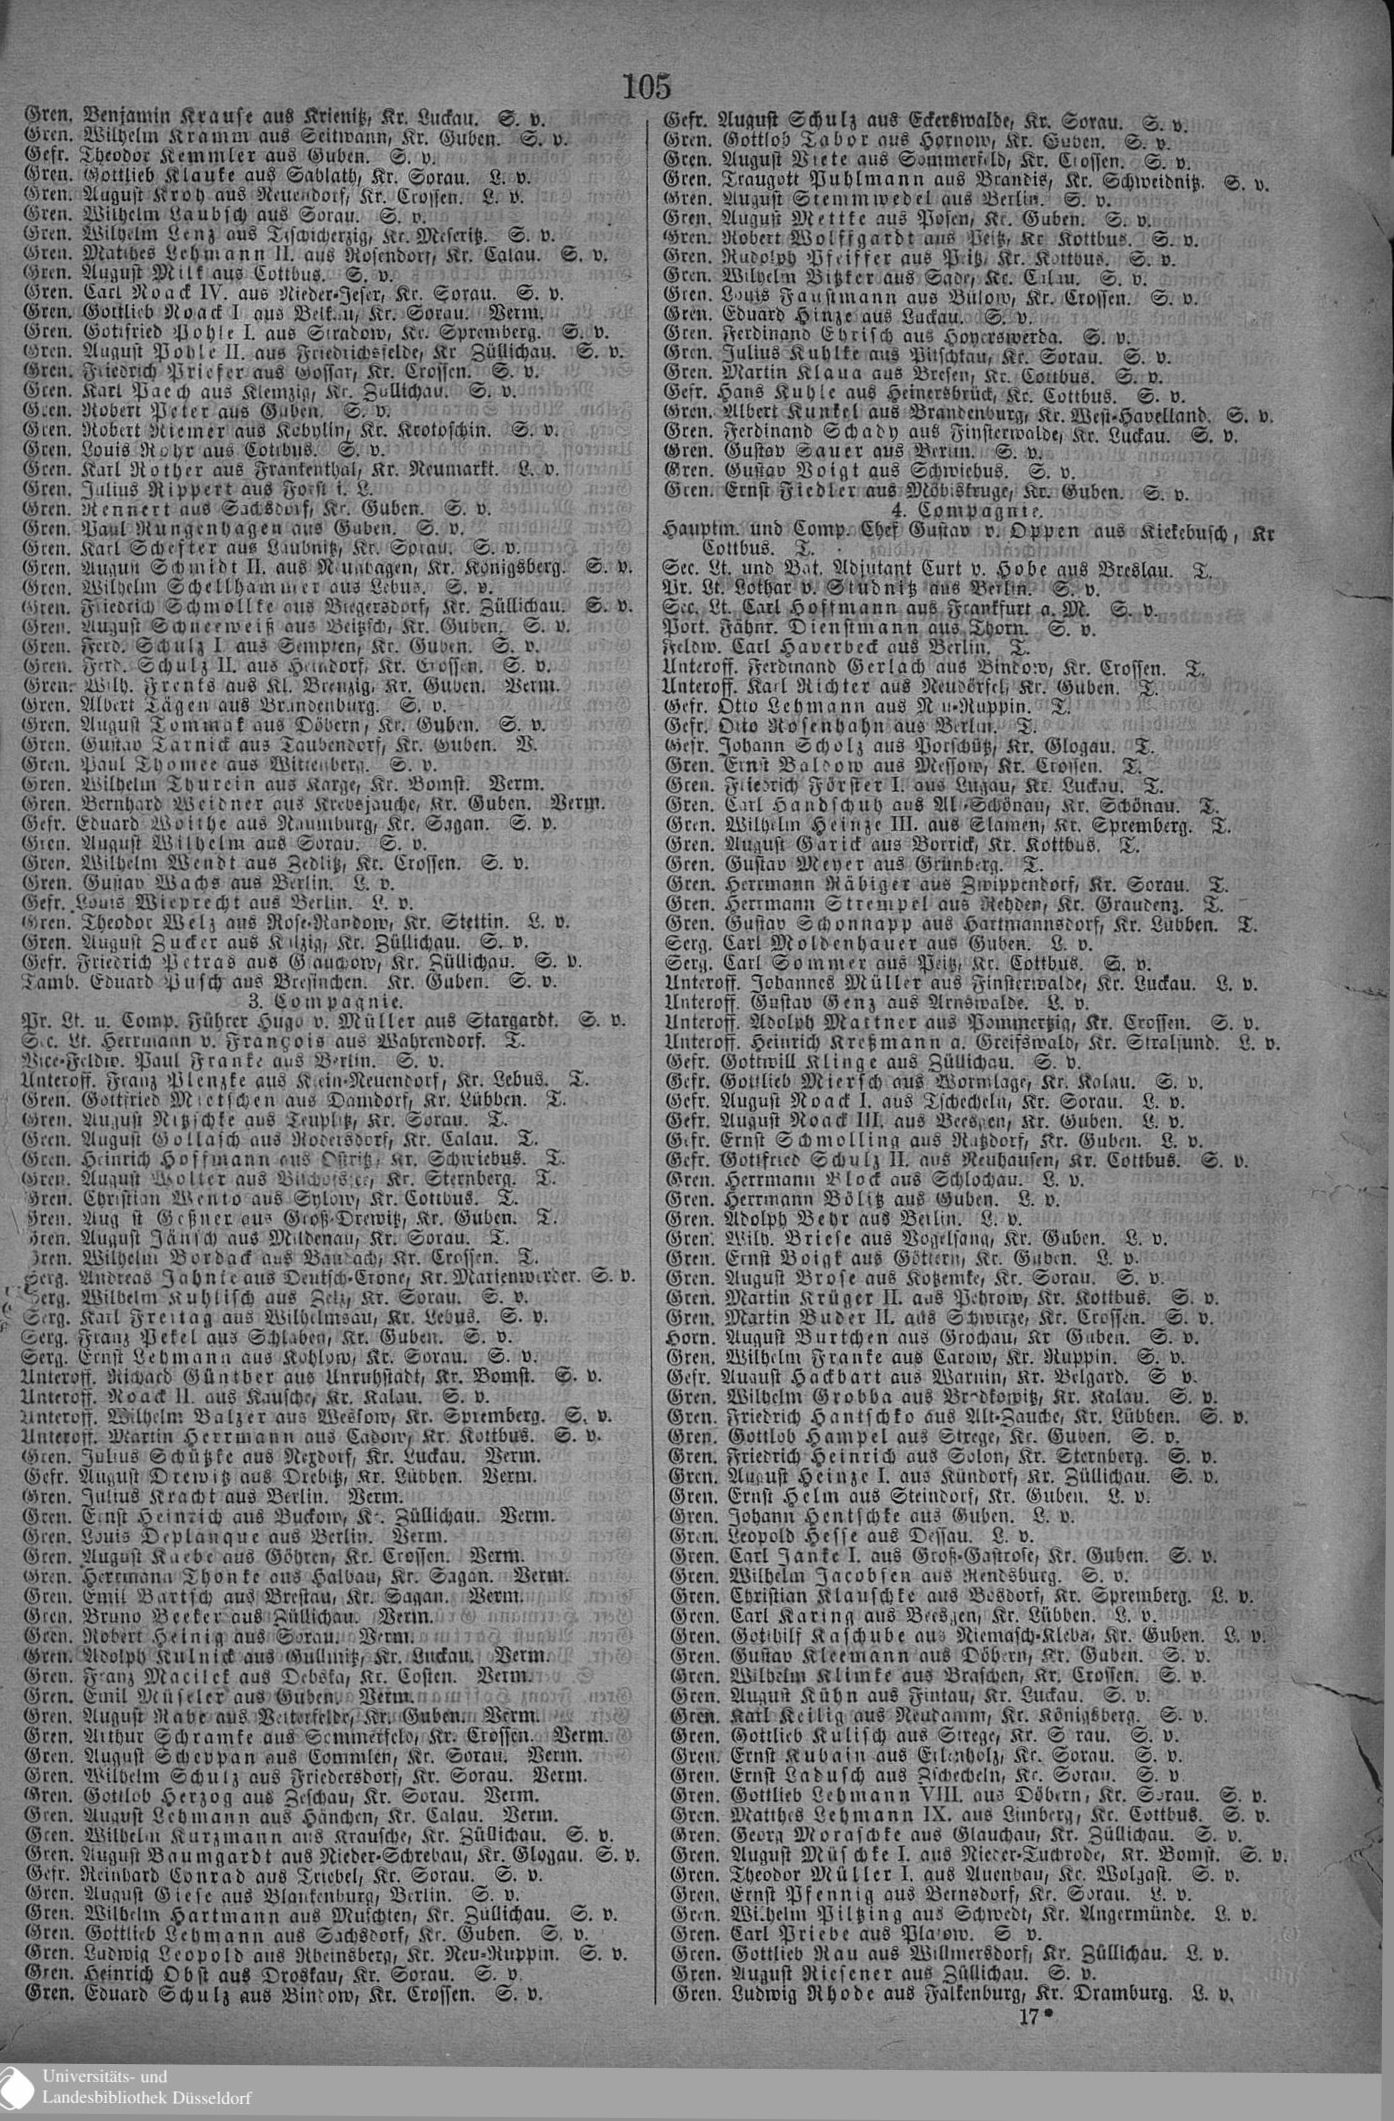 105
Gren. Benjamin Krause aus Krienitz, Kr. Luckau. S. v.
Gren. Wilhelm Kramm aus Seitwann, Kr. Guben. S. v.
Gefr. Theodor Kemmler aus Guben. S. v.
Gren. Gottlieb Klauke aus Sablath, Kr. Sorau. L. v.
Gren. August Kroh aus Neuendorf, Kr. Crossen. L. v.
Gren. Wilhelm Laubsch aus Sorau. S. v.
Gren. Wilhelm Lenz aus Tschicherzig, Kr. Meseritz. S. v.
Gren. Matthes Lehmann II. aus Rosendorf, Kr. Calau. S. v.
Gren. August Milk aus Cottbus. S. v.
Gren. Carl Noack IV. aus Nieder-Jeser, Kr. Sorau. S. v.
Gren. Gottlieb Noack I. aus Kr. Sorau. Verm.
Gren. Gottfried Pohle I. aus Stradow, Kr. Spremberg. S. v.
Gren. August Pohle II. aus Friedrichsfelde, Kr. Züllichau. S. v.
Gren. Friedrich Priefer aus Gossar, Kr. Crossen. S. v.
Gren. Karl Paech aus Klemzig, Kr. Züllichau. S. v.
Gren. Robert Peter aus Guben. S. v.
Gren. Robert Riemer aus Kobylin, Kr. Krotoschin. S. v.
Gren. Louis Rohr aus Cottbus. S. v.
Gren. Karl Rother aus Frankenthal, Kr. Neumarkt. L. v.
Gren. Julius Rippert aus Forst i. L.
Gren. Rennert aus Sachsdorf, Kr. Guben. S. v.
Gren. Paul Rungenhagen aus Guben. S. v.
Gren. Karl Schefter aus Laubnitz, Kr. Sorau. S. v.
Gren. August Schmidt II. aus Kr. Königsberg. S. v.
Gren. Wilhelm Schellhammer aus Lebus. S. v.
Gren. Friedrich Schmollke aus Biegersdorf, Kr. Züllichau. S. v.
Gren. August Schneeweiß aus Beitzsch, Kr. Guben. S. v.
Gren. Ferd. Schulz I. aus Sempten, Kr. Guben. S. v.
Gren. Ferd. Schulz II. aus Heindorf, Kr. Crossen. S. v.
Gren. Wilh. Frenks aus Kl. Brenzig, Kr. Guben. Verm.
Gren. Albert Tägen aus Brandenburg. S. v.
Gren. August Tommak aus Döbern, Kr. Guben. S. v.
Gren. Gustav Tarnick aus Taubendorf, Kr. Guben. V.
Gren. Paul Thomee aus Wittenberg. S. v.
Gren. Wilhelm Thurein aus Karge, Kr. Bomst. Verm.
Gren. Bernhard Weidner aus Krebsjauche, Kr. Guben. Verm.
Gefr. Eduard Woithe aus Naumburg, Kr. Sagan. S. v.
Gren. August Wilhelm aus Sorau. S. v.
Gren. Wilhelm Wendt aus Zedlitz, Kr. Crossen. S. v.
Gren. Gustav Wachs aus Berlin. L. v.
Gefr. Louis Wieprecht aus Berlin. L. v.
Gren. Theodor Welz aus Rose-Randow, Kr. Stettin. L. v.
Gren. August Zucker aus Kalzig, Kr. Züllichau. S. v.
Gefr. Friedrich Petras aus Glauchow, Kr. Züllichau. S. v.
Tamb. Eduard Pusch aus Bresinchen. Kr. Guben. S. v.
3. Compagnie.
Pr. Lt. u. Comp. Führer Hugo v. Müller aus Stargardt. S. v.
Sec. Lt. Herrmann v. François aus Wahrendorf. T.
Vice-Feldw. Paul Franke aus Berlin. S. v.
Unteroff. Franz Plenzke aus Klein-Neuendorf, Kr. Lebus. T.
Gren. Gottfried Mietschen aus Damdorf, Kr. Lübben. T.
Gren. August Nitzschke aus Teuplitz, Kr. Sorau. T.
Gren. August Gollasch aus Rodersdorf, Kr. Calau. T.
Gren. Heinrich Hoffmann aus Ostritz, Kr. Schwiebus. T.
Gren. August Wolter aus Kr. Sternberg. T.
Gren. Christian Wento aus Sylow, Kr. Cottbus. T.
Gren. August Geßner aus Groß-Drewitz, Kr. Guben. T.
Gren. August Jänsch aus Mildenau, Kr. Sorau. T.
Gren. Wilhelm Bordack aus Baudach, Kr. Crossen. T.
Serg. Andreas Jahnke aus Deutsch-Crone, Kr. Marienwerder. S. v.
Serg. Wilhelm Kuhlisch aus Zelz, Kr. Sorau. S. v.
Serg. Karl Freitag aus Wilhelmsau, Kr. Lebus. S. v.
Serg. Franz Pekel aus Schlaben, Kr. Guben. S. v.
Serg. Ernst Lehmann aus Kohlow, Kr. Sorau. S. v.
Unteroff. Richard Günther aus Unruhstadt, Kr. Bomst. S. v.
Unteroff. Noack II. aus Kausche, Kr. Kalau. S. v.
Unteroff. Wilhelm Balzer aus Weskow, Kr. Spremberg. S. v.
Unteroff. Martin Herrmann aus Cadow, Kr. Kottbus. S. v.
Gren. Julius Schützke aus Rexdorf, Kr. Luckau. Verm.
Gefr. August Drewitz aus Drebitz, Kr. Lübben. Verm.
Gren. Julius Kracht aus Berlin. Verm.
Gren. Ernst Heinrich aus Buckow, Kr. Züllichau. Verm.
Gren. Louis Deplanque aus Berlin. Verm.
Gren. August Kaebe aus Göhren, Kr. Crossen. Verm.
Gren. Herrmann Thonke aus Halbau, Kr. Sagan. Verm.
Gren. Emil Bartsch aus Brestau, Kr. Sagan. Verm.
Gren. Bruno Beeker aus Züllichau. Verm.
Gren. Robert Heinig aus Sorau. Verm.
Gren. Adolph Kulnick aus Gullmitz, Kr. Luckau. Verm.
Gren. Franz Macilek aus Debska, Kr. Costen. Verm.
Gren. Emil Müseler aus Guben. Verm.
Gren. August Rabe aus Kr. Guben. Verm.
Gren. Arthur Schramke aus Sommerfeld, Kr. Crossen. Verm.
Gren. August Scheppan aus Commlen, Kr. Sorau. Verm.
Gren. Wilhelm Schulz aus Friedersdorf, Kr. Sorau. Verm.
Gren. Gottlob Herzog aus Zeschau, Kr. Sorau. Verm.
Gren. August Lehmann aus Hänchen, Kr. Calau. Verm.
Gren. Wilhelm Kurzmann aus Krausche, Kr. Züllichau. S. v.
Gren. August Baumgardt aus Nieder-Schrebau, Kr. Glogau. S. v.
Gefr. Reinhard Conrad aus Triebel, Kr. Sorau. S. v.
Gren. August Giese aus Blankenburg, Berlin. S. v.
Gren. Wilhelm Hartmann aus Muschten, Kr. Züllichau. S. v.
Gren. Gottlieb Lehmann aus Sachsdorf, Kr. Guben. S. v.
Gren. Ludwig Leopold aus Rheinsberg, Kr. Neu-Ruppin. S. v.
Gren. Heinrich Obst aus Droskau, Kr. Sorau. S. v.
Gren. Eduard Schulz aus Bindow, Kr. Crossen. S. v.
Gefr. August Schulz aus Eckerswalde, Kr. Sorau. S. v.
Gren. Gottlob Tabor aus Hornow, Kr. Guben. S. v.
Gren. August Viete aus Sommerfeld, Kr. Crossen. S. v.
Gren. Traugott Puhlmann aus Brandis, Kr. Schweidnitz. S. v.
Gren. August Stemmwedel aus Berlin. S. v.
Gren. August Mettke aus Posen, Kr. Guben. S. v.
Gren. Robert Wolffgardt aus Peitz, Kr. Kottbus. S. v.
Gren. Rudolph Pfeiffer aus Peitz, Kr. Kottbus. S. v.
Gren. Wilhelm Bitzker aus Sade, Kr. Culm. S. v.
Gren. Louis Faustmann aus Bülow, Kr. Crossen. S. v.
Gren. Eduard Hinze aus Luckau. S. v.
Gren. Ferdinand Ehrisch aus Hoyerswerda. S. v.
Gren. Julius Kuhlke aus Pitschkau, Kr. Sorau. S. v.
Gren. Martin Klaua aus Bresen, Kr. Cottbus. S. v.
Gefr. Hans Kuhle aus Heinersbrück, Kr. Cottbus. S. v.
Gren. Albert Kunkel aus Brandenburg, Kr. West-Havelland. S. v.
Gren. Ferdinand Schady aus Finsterwalde, Kr. Luckau. S. v.
Gren. Gustav Sauer aus Berlin. S. v.
Gren. Gustav Voigt aus Schwiebus. S. v.
Gren. Ernst Fiedler aus Möbiskruge, Kr. Guben. S. v.
4. Compagnie.
Hauptm. und Comp. Chef Gustav v. Oppen aus Kiekebusch, Kr
Cottbus. T.
Sec. Lt. und Bat. Adjutant Curt v. Hobe aus Breslau. T.
Pr. Lt. Lothar v. Studnitz aus Berlin. S. v.
Sec. Lt. Carl Hoffmann aus Frankfurt a. M. S. v.
Port. Fähnr. Dienstmann aus Thorn. S. v.
Feldw. Carl Haverbeck aus Berlin. T.
Unteroff. Ferdinand Gerlach aus Bindow, Kr. Crossen. T.
Unteroff. Karl Richter aus Neudörfel, Kr. Guben. T.
Gefr. Otto Lehmann aus Neu-Ruppin. T.
Gefr. Otto Rosenhahn aus Berlin. T.
Gefr. Johann Scholz aus Porschütz, Kr. Glogau. T.
Gren. Ernst Baldow aus Messow, Kr. Crossen. T.
Gren. Friedrich Förster I. aus Lugau, Kr. Luckau. T.
Gren. Carl Handschuh aus Alt-Schönau, Kr. Schönau. T.
Gren. Wilhelm Heinze III. aus Slamen, Kr. Spremberg. T.
Gren. August Garick aus Borrick, Kr. Kottbus. T.
Gren. Gustav Meyer aus Grünberg. T.
Gren. Herrmann Räbiger aus Zwippendorf, Kr. Sorau. T.
Gren. Herrmann Strempel aus Rehden, Kr. Graudenz. T.
Gren. Gustav Schonnapp aus Hartmannsdorf, Kr. Lübben. T.
Serg. Carl Moldenhauer aus Guben. L. v.
Serg. Carl Sommer aus Peitz, Kr. Cottbus. S. v.
Unteroff. Johannes Müller aus Finsterwalde, Kr. Luckau. L. v.
Unteroff. Gustav Genz aus Arnswalde. L. v.
Unteroff. Adolph Mattner aus Pommertzig, Kr. Crossen. S. v.
Unteroff. Heinrich Kretzmann a. Greifswald, Kr. Stralsund. L. v.
Gefr. Gottwill Klinge aus Züllichau. S. v.
Gefr. Gottlieb Miersch aus Wormlage, Kr. Kalau. S. v.
Gefr. August Noack I. aus Tschecheln, Kr. Sorau. L. v.
Gefr. August Noack III. aus Beesgen, Kr. Guben. L. v.
Gefr. Ernst Schmolling aus Ratzdorf, Kr. Guben. L. v.
Gefr. Gottfried Schulz II. aus Neuhausen, Kr. Cottbus. S. v.
Gren. Herrmann Block aus Schlochau. L. v.
Gren. Herrmann Bölitz aus Guben. L. v.
Gren. Adolph Behr aus Berlin. L. v.
Gren. Wilh. Briese aus Vogelsang, Kr. Guben. L. v.
Gren. Ernst Boigk aus Göttern, Kr. Guben. L. v.
Gren. August Brose aus Kotzemke, Kr. Sorau. S. v.
Gren. Martin Krüger II. aus Pehrow, Kr. Kottbus. S. v.
Gren. Martin Buder II. aus Schwirze, Kr. Crossen. S. v.
Horn. August Burtchen aus Grochau, Kr Guben. S. v.
Gren. Wilhelm Franke aus Carow, Kr. Ruppin. S. v.
Gefr. August Hackbart aus Warnin, Kr. Belgard. S v.
Gren. Wilhelm Grobba aus Bradkowitz, Kr. Kalau. S. v.
Gren. Friedrich Hantschko aus Alt-Zauche, Kr. Lübben. S. v.
Gren. Gottlob Hampel aus Strege, Kr. Guben. S. v.
Gren. Friedrich Heinrich aus Solon, Kr. Sternberg. S. v.
Gren. August Heinze I. aus Kündorf, Kr. Züllichau. S. v.
Gren. Ernst Helm aus Steindorf, Kr. Guben. L. v.
Gren. Johann Hentschke aus Guben. L. v.
Gren. Leopold Hesse aus Dessau. L. v.
Gren. Carl Janke I. aus Groß-Gastrose, Kr. Guben. S. v.
Gren. Wilhelm Jacobsen aus Rendsburg. S. v.
Gren. Christian Klauschke aus Bosdorf, Kr. Spremberg. L. v.
Gren. Carl Karing aus Beesgen, Kr. Lübben. L. v.
Gren. Gotthilf Kaschube aus Niemasch-Kleba, Kr. Guben. L. v.
Gren. Gustav Kleemann aus Döbern, Kr. Guben. S. v.
Gren. Wilhelm Klimke aus Braschen, Kr. Crossen. S. v.
Gren. August Kühn aus Fintau, Kr. Luckau. S. v.
Gren. Karl Keilig aus Neudamm, Kr. Königsberg. S. v.
Gren. Gottlieb Kulisch aus Strege, Kr. Sorau. S. v.
Gren. Ernst Kubain aus Erlenholz, Kr. Sorau. S. v.
Gren. Ernst Ladusch aus Zschecheln, Kr. Sorau. S. v
Gren. Gottlieb Lehmann VIII. aus Döbern, Kr. Sorau. S. v.
Gren. Matthes Lehmann IX. aus Limberg, Kr. Cottbus. S. v.
Gren. Georg Moraschke aus Glauchau, Kr. Züllichau. S. v.
Gren. August Müschke I. aus Nieder-Tuchrode, Kr. Bomst. S. v.
Gren. Theodor Müller I. aus Auenbau, Kr. Wolgast. S. v.
Gren. Ernst Pfennig aus Bernsdorf, Kr. Sorau. L. v.
Gren. Wilhelm Piltzing aus Schwedt, Kr. Angermünde. L. v.
Gren. Carl Priebe aus Platow. S v.
Gren. Gottlieb Rau aus Willmersdorf, Kr. Züllichau. L. v.
Gren. August Riesener aus Züllichau. S. v.
Gren. Ludwig Rhode aus Falkenburg, Kr. Dramburg. L. v.
17*
Universitäts- und
Landesbibliothek Düsseldorf